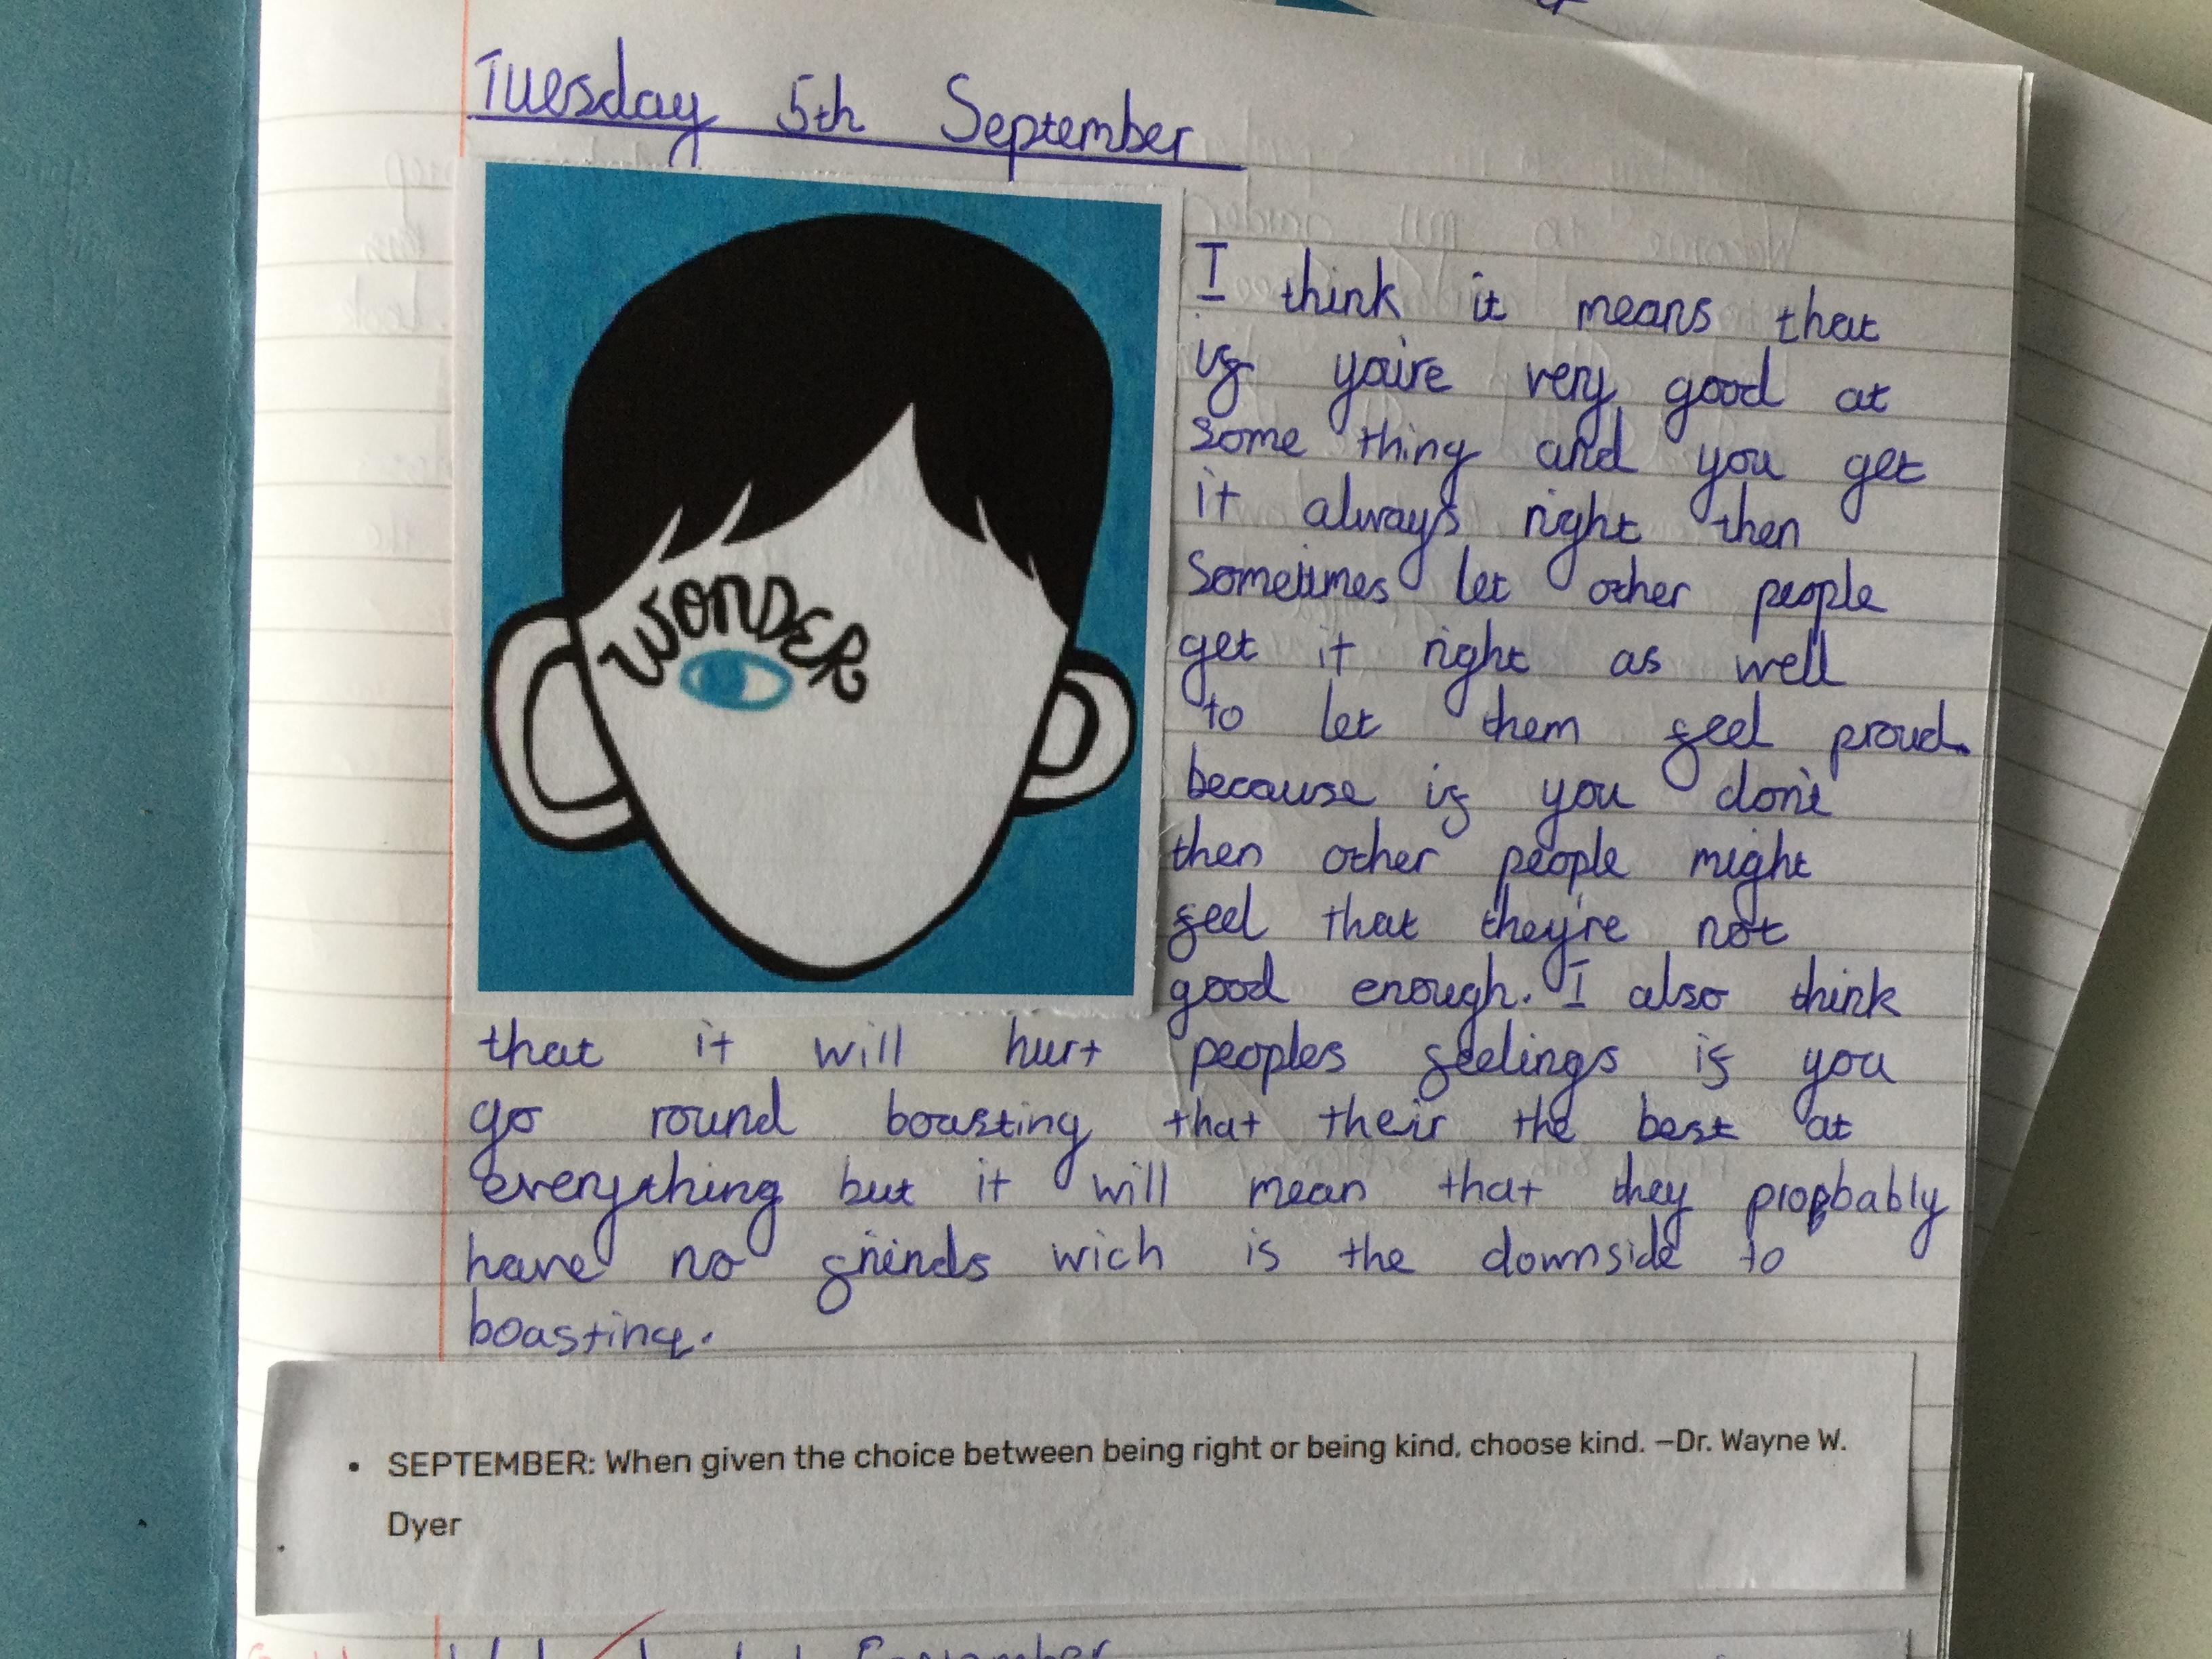 Tuesday 5th September
WONDER
I think it means that
if you're very good at
some thing and you get
it always right then
Sometimes let other people
get it right as well
to let them feel proud.
because if you don't
then other people might
feel that they're not
good enough. I also think
that it will hurt peoples feelings if you
go round boasting that their the best at
everything but it will mean that they propbably
have no friends wich is the downside to
boasting.
• SEPTEMBER: When given the choice between being right or being kind, choose kind. —Dr. Wayne W.
Dyer
September